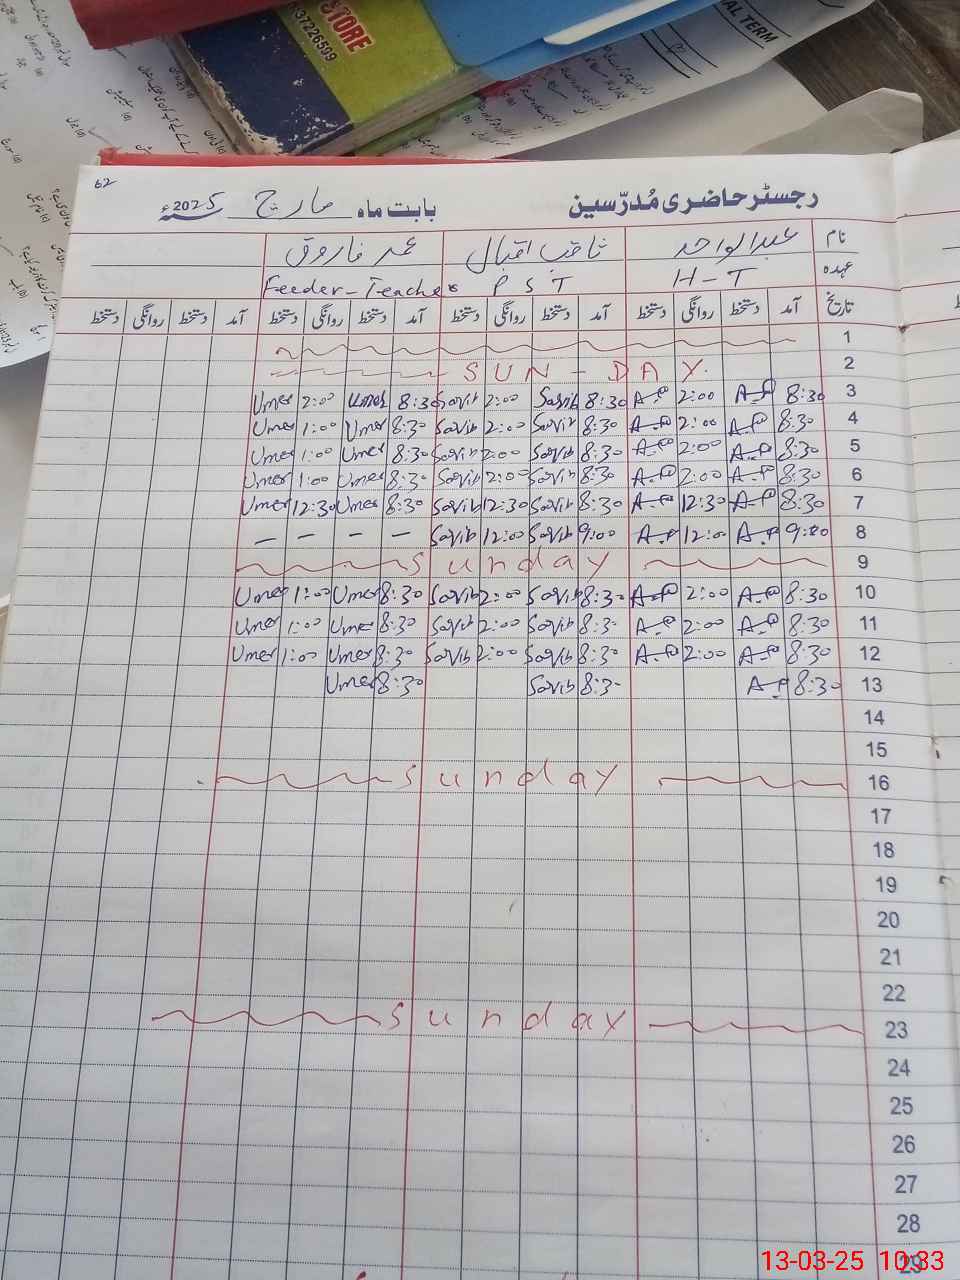 STORE
37226509
AL TERM
62
رجسٹر حاضری مُدرّسین بابت ماہ مارچ سنہ 2025ء
نام عبدالواحد ثاقب اقبال عمر فاروق
عہدہ H-T P S T Feeder-Teacher
تاریخ آمد دستخط روانگی دستخط آمد دستخط روانگی دستخط آمد دستخط روانگی دستخط آمد دستخط روانگی دستخط
1
SUN-DAY. 2
Umer 2:00 Umer 8:30 Saqib 2:00 Saqib 8:30 A-P 2:00 A-P 8:30 3
Umer 1:00 Umer 8:30 Saqib 2:00 Saqib 8:30 A-P 2:00 A-P 8:30 4
Umer 1:00 Umer 8:30 Saqib 2:00 Saqib 8:30 A-P 2:00 A-P 8:30 5
Umer 1:00 Umer 8:30 Saqib 2:00 Saqib 8:30 A-P 2:00 A-P 8:30 6
Umer 12:30 Umer 8:30 Saqib 12:30 Saqib 8:30 A-P 12:30 A-P 8:30 7
— — — — Saqib 12:00 Saqib 9:00 A-P 12:00 A-P 9:00 8
Sunday 9
Umer 1:00 Umer 8:30 Saqib 2:00 Saqib 8:30 A-P 2:00 A-P 8:30 10
Umer 1:00 Umer 8:30 Saqib 2:00 Saqib 8:30 A-P 2:00 A-P 8:30 11
Umer 1:00 Umer 8:30 Saqib 2:00 Saqib 8:30 A-P 2:00 A-P 8:30 12
Umer 8:30 Saqib 8:30 A-P 8:30 13
14
15
Sunday 16
17
18
19
20
21
22
Sunday 23
24
25
26
27
28
29
13-03-25 10:33